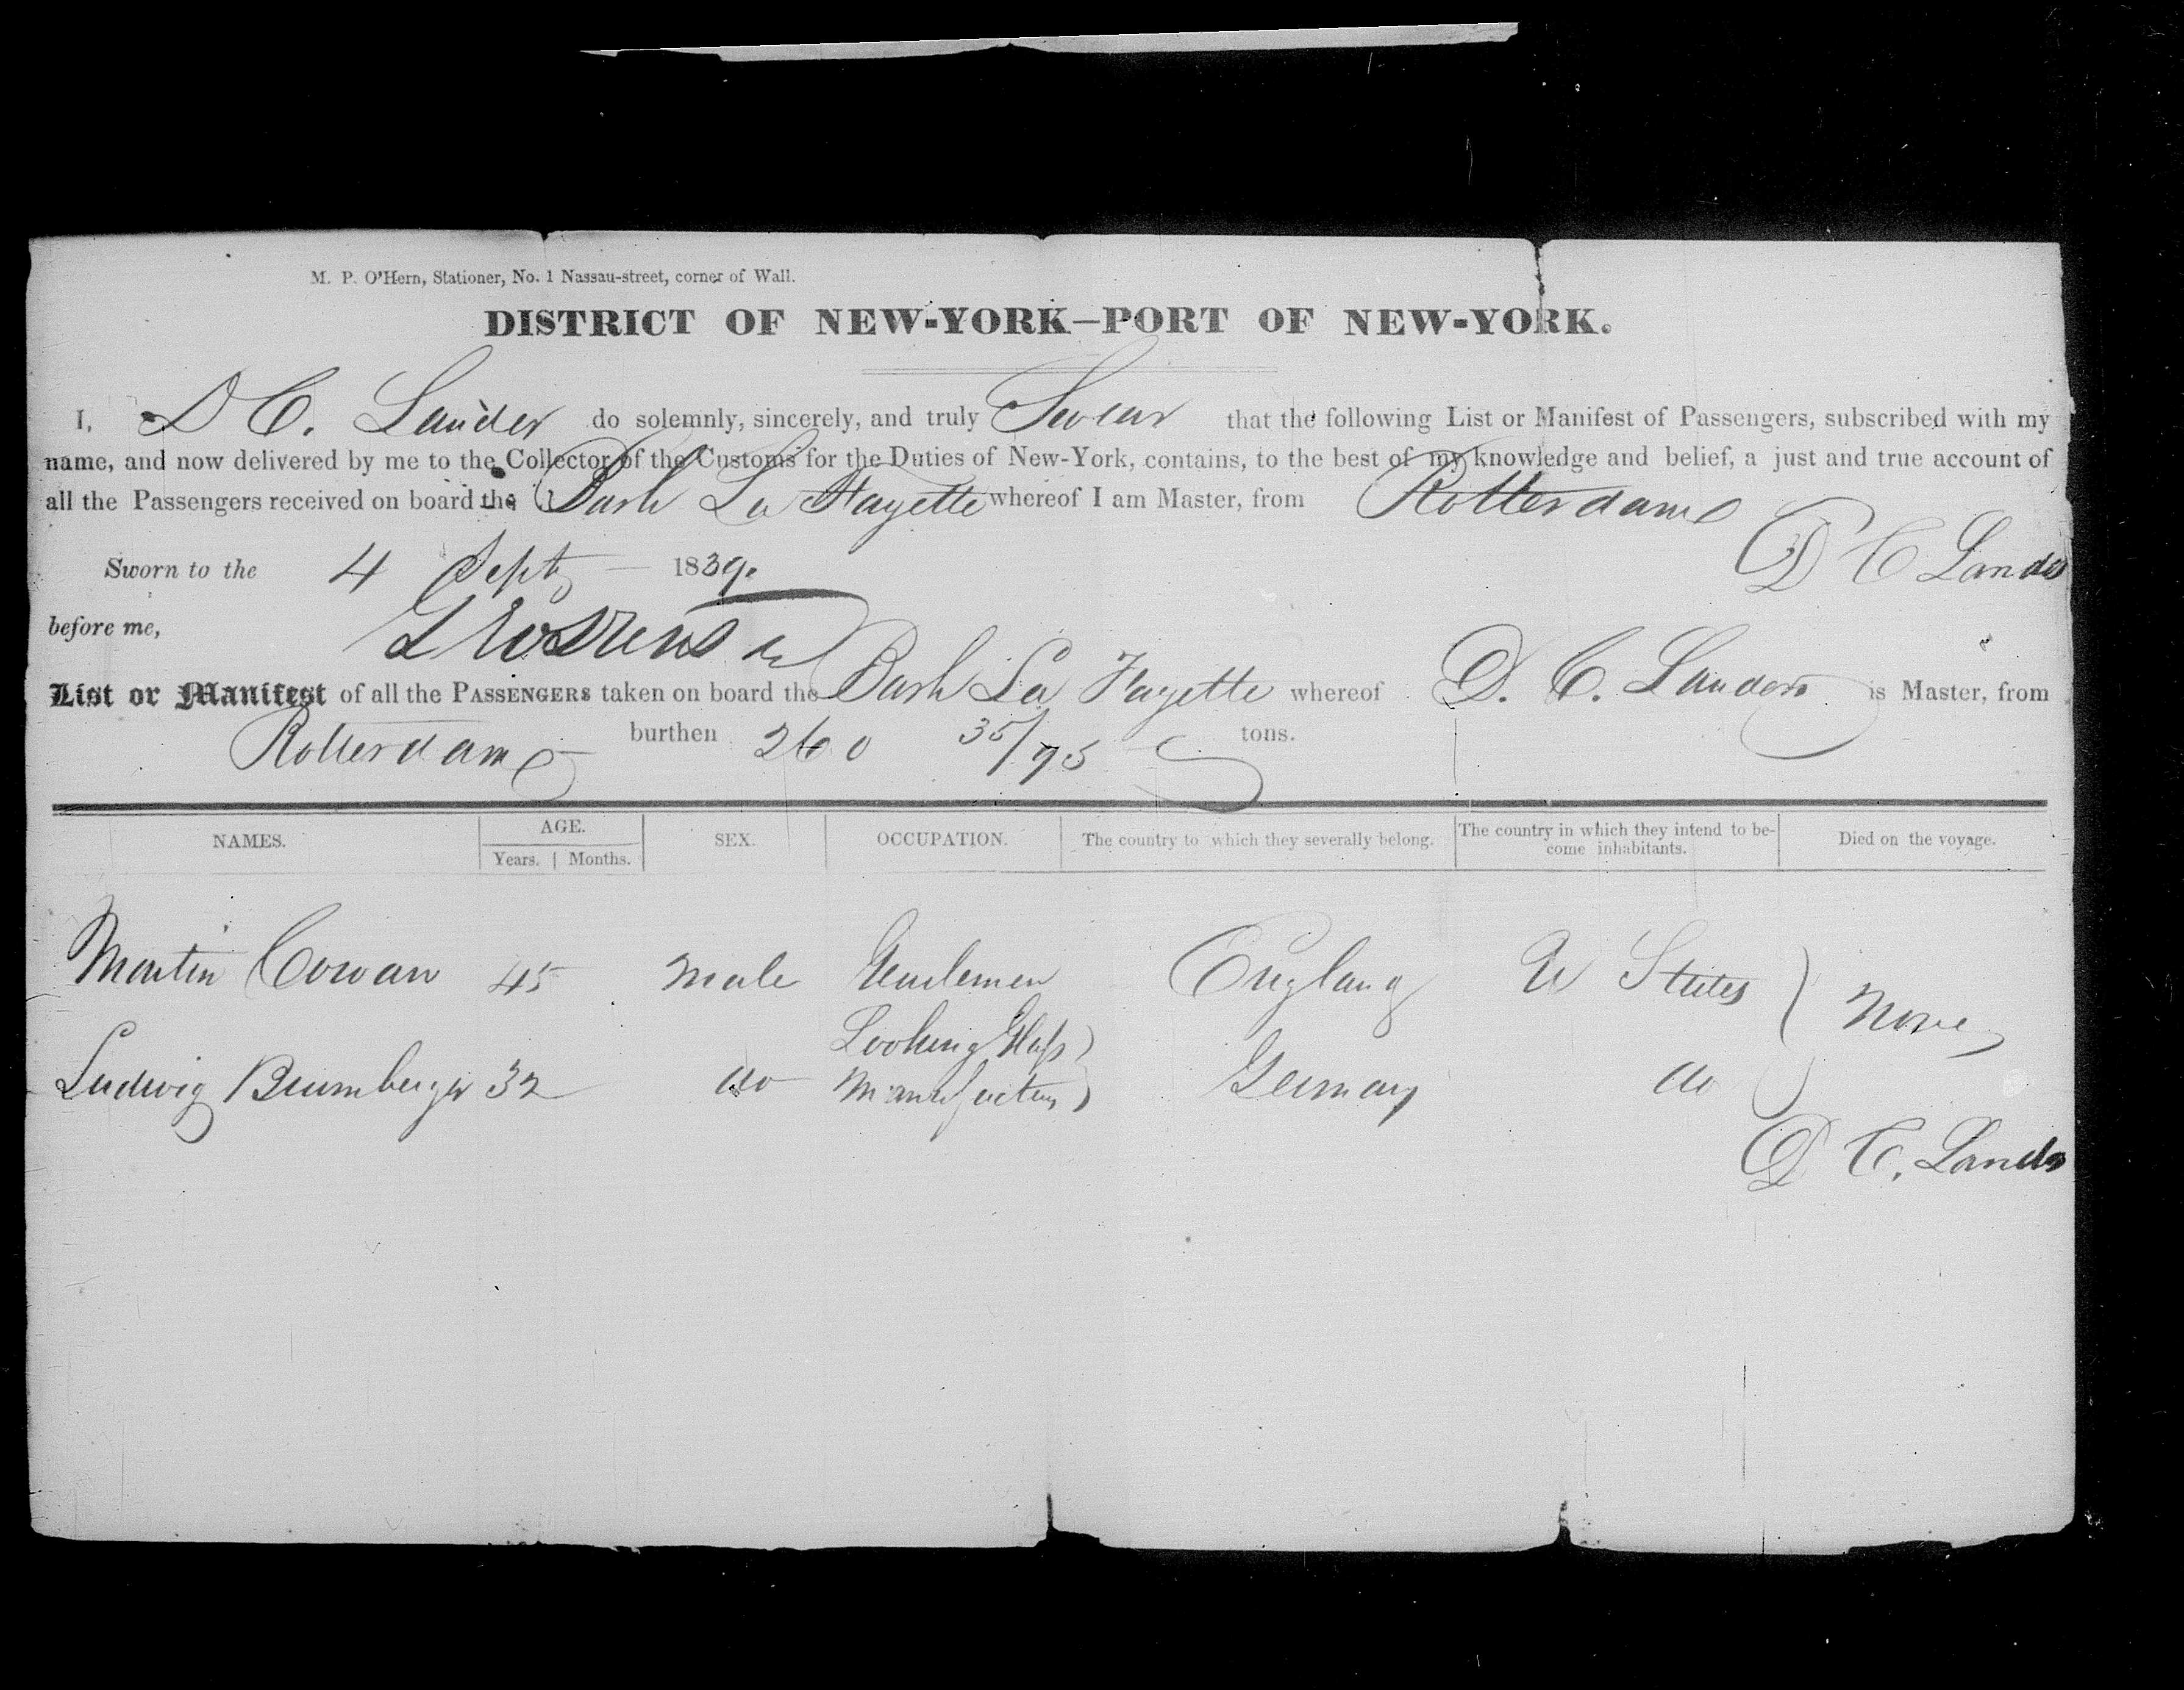 M. P. O'Hern, Stationer, No. 1 Nassau-street, corner of Wall.
DISTRICT OF NEW-YORK—PORT OF NEW-YORK.
I, D C. Lander do solemnly, sincerely, and truly Swear that the following List or Manifest of Passengers, subscribed with my
name, and now delivered by me to the Collector of the Customs for the Duties of New-York, contains, to the best of my knowledge and belief, a just and true account of
all the Passengers received on board the Bark La Fayette whereof I am Master, from Rotterdam
D C Lander
Sworn to the 4 Sept 1839.
before me,
List or Manifest of all the PASSENGERS taken on board the Bark La Fayette whereof D. C. Lander is Master, from
Rotterdam burthen 260 35/95 tons.
NAMES. AGE. SEX. OCCUPATION. The country to which they severally belong. The country in which they intend to be-
come inhabitants. Died on the voyage.
Years. Months.
Martin Cowan 45 male Gentlemen England U States None
Looking Glass
Ludwig Brumberger 32 do Manufacturer Germany do
D C. Lander